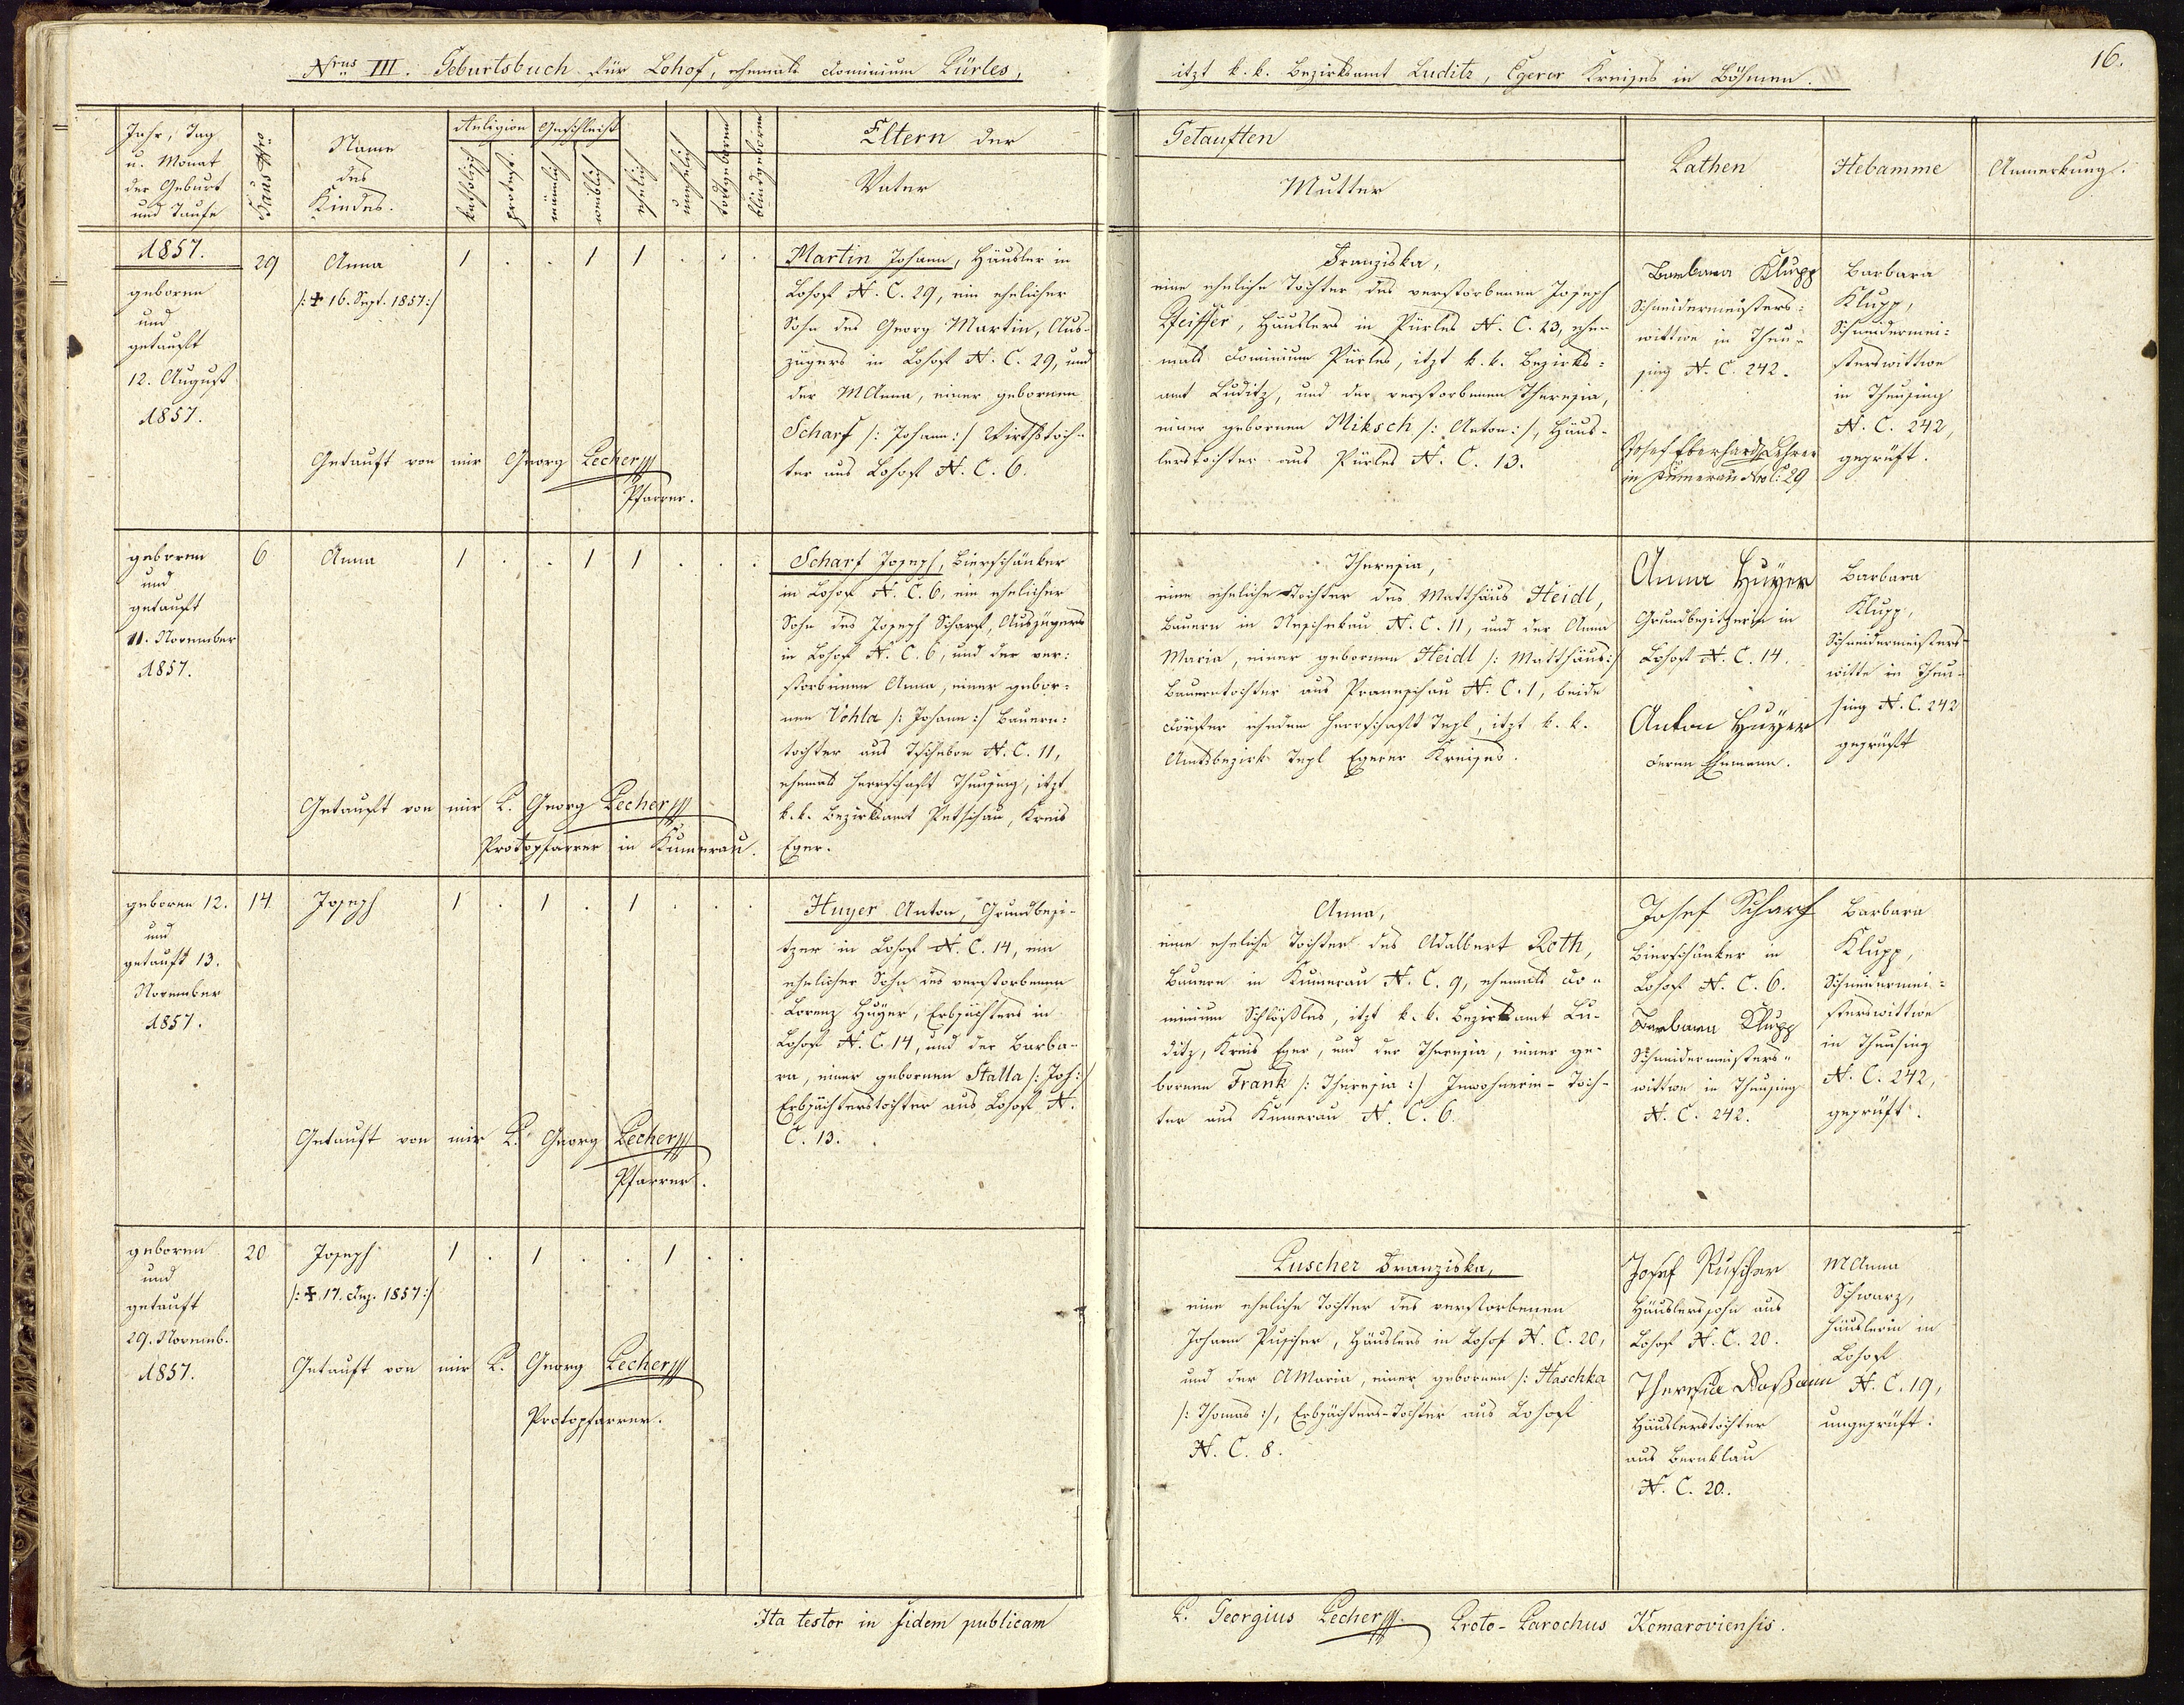 Nrus III. Geburtsbuch für Lohof, ehemals Dominium Pürles,
itzt k. k. Bezirksamt Luditz, Egerer Kreises in Böhmen.
16.
Jahr, Tag
u. Monat
der Geburt
und Taufe
Haus Nro
Name
des
Kindes.
Religion
katholisch
protest.
Geschlecht
männlich
weiblich
ehelich
unehelich
todtgeboren
blindgeboren
Eltern der
Vater
Getauften
Mutter
Pathen
Hebamme
Anmerkung.
1857.
geboren
und
getauft
12. August
1857.
29
Anna
/: ✠ 16. Sept. 1857 :/
1 . . 1 1 . . .
Getauft von mir Georg Pecher
Pfarrer.
Martin Johann, Häusler in
Lohof N. C. 29, ein ehelicher
Sohn des Georg Martin, Aus-
zügers in Lohof N. C. 29, und
der MAnna, einer gebornen
Scharf /: Johann :/ Wirthstoch-
ter aus Lohof N. C. 6.
Franziska,
eine eheliche Tochter des verstorbenen Joseph
Pfeiffer, Häuslers in Pürles N. C. 23, ehe-
mals Dominium Pürles, itzt k. k. Bezirks-
amt Luditz, und der verstorbenen Theresia,
einer gebornen Miksch /: Anton :/, Häus-
lerstochter aus Pürles N. C. 13.
Barbara Klupp
Schneidermeisters-
wittwe in Theu-
sing N. C. 242.
Josef Eberhard Lehrer
in Kumerau Nro C: 29
Barbara
Klupp,
Schneidermei-
sterswittwe
in Theusing
N. C. 242,
geprüft.
geboren
und
getauft
11. November
1857.
6
Anna
1 . . 1 1 . . .
Getauft von mir P. Georg Pecher
Protopfarrer in Kumerau.
Scharf Joseph, Bierschänker
in Lohof N. C. 6, ein ehelicher
Sohn des Joseph Scharf, Auszügers
in Lohof N. C. 6, und der ver-
storbenen Anna, einer gebor-
nen Vohla /: Johann :/ Bauern-
tochter aus Tschebon N. C. 11,
ehemals Herrschaft Theusing, itzt
k. k. Bezirksamt Petschau, Kreis
Eger.
Theresia,
eine eheliche Tochter des Matthäus Heidl,
Bauern in N. C. 11, und der Anna
Maria, einer gebornen Heidl /: Matthäus :/
Bauerntochter aus N. C. 1, beide
Dörfer ehedem Herrschaft Tepl, itzt k. k.
Amtsbezirk Tepl Egerer Kreises.
Anna Huyer
Grundbesitzerin in
Lohof N. C. 14.
Anton Huyer
deren Ehmann.
Barbara
Klupp,
Schneidermeisters-
witte in Theu-
sing N. C. 242
geprüft
geboren 12.
und
getauft 13.
November
1857.
14
Joseph
1 . 1 . 1 . . .
Getauft von mir P. Georg Pecher
Pfarrer.
Huyer Anton, Grundbesi-
tzer in Lohof N. C. 14, ein
ehelicher Sohn des verstorbenen
Lorenz Huyer, Erbpächters in
Lohof N. C. 14, und der Barba-
ra, einer gebornen Stalla /: Joh :/
Erbpächterstochter aus Lohof N.
C. 13.
Anna,
eine eheliche Tochter des Adalbert Roth,
Bauern in Kumerau N. C. 9, ehemals Do-
minium Schlößles, itzt k. k. Bezirksamt Lu-
ditz, Kreis Eger, und der Theresia, einer ge-
bornen Frank /: Theresia :/ Inwohnerin-Toch-
ter aus Kumerau N. C. 6.
Josef Scharf
Bierschänker in
Lohof N. C. 6.
Barbara Klupp
Schneidermeisters-
wittwe in Theusing
N. C. 242.
Barbara
Klupp,
Schneidermei-
sterswittwe
in Theusing
N. C. 242,
geprüft.
geboren
und
getauft
29. Novemb.
1857.
20
Joseph
/: ✠ 17. Dez. 1857 :/
1 . 1 . . 1 . .
Getauft von mir P. Georg Pecher
Protopfarrer.
Puscher Franziska,
eine eheliche Tochter des verstorbenen
Johann Puscher, Häuslers in Lohof N. C. 20,
und der AMaria, einer gebornen /: Haschka
/: Thomas :/, Erbpächters-Tochter aus Lohof
N. C. 8.
Josef Puscher
Häuslerssohn aus
Lohof N. C. 20.
Theresia
Häuslerstochter
aus Bernklau
N. C. 20.
MAnna
Schwarz,
Häuslerin in
Lohof
N. C. 19,
ungeprüft.
Ita testor in fidem publicam
P. Georgius Pecher Proto-Parochus Komaroviensis.